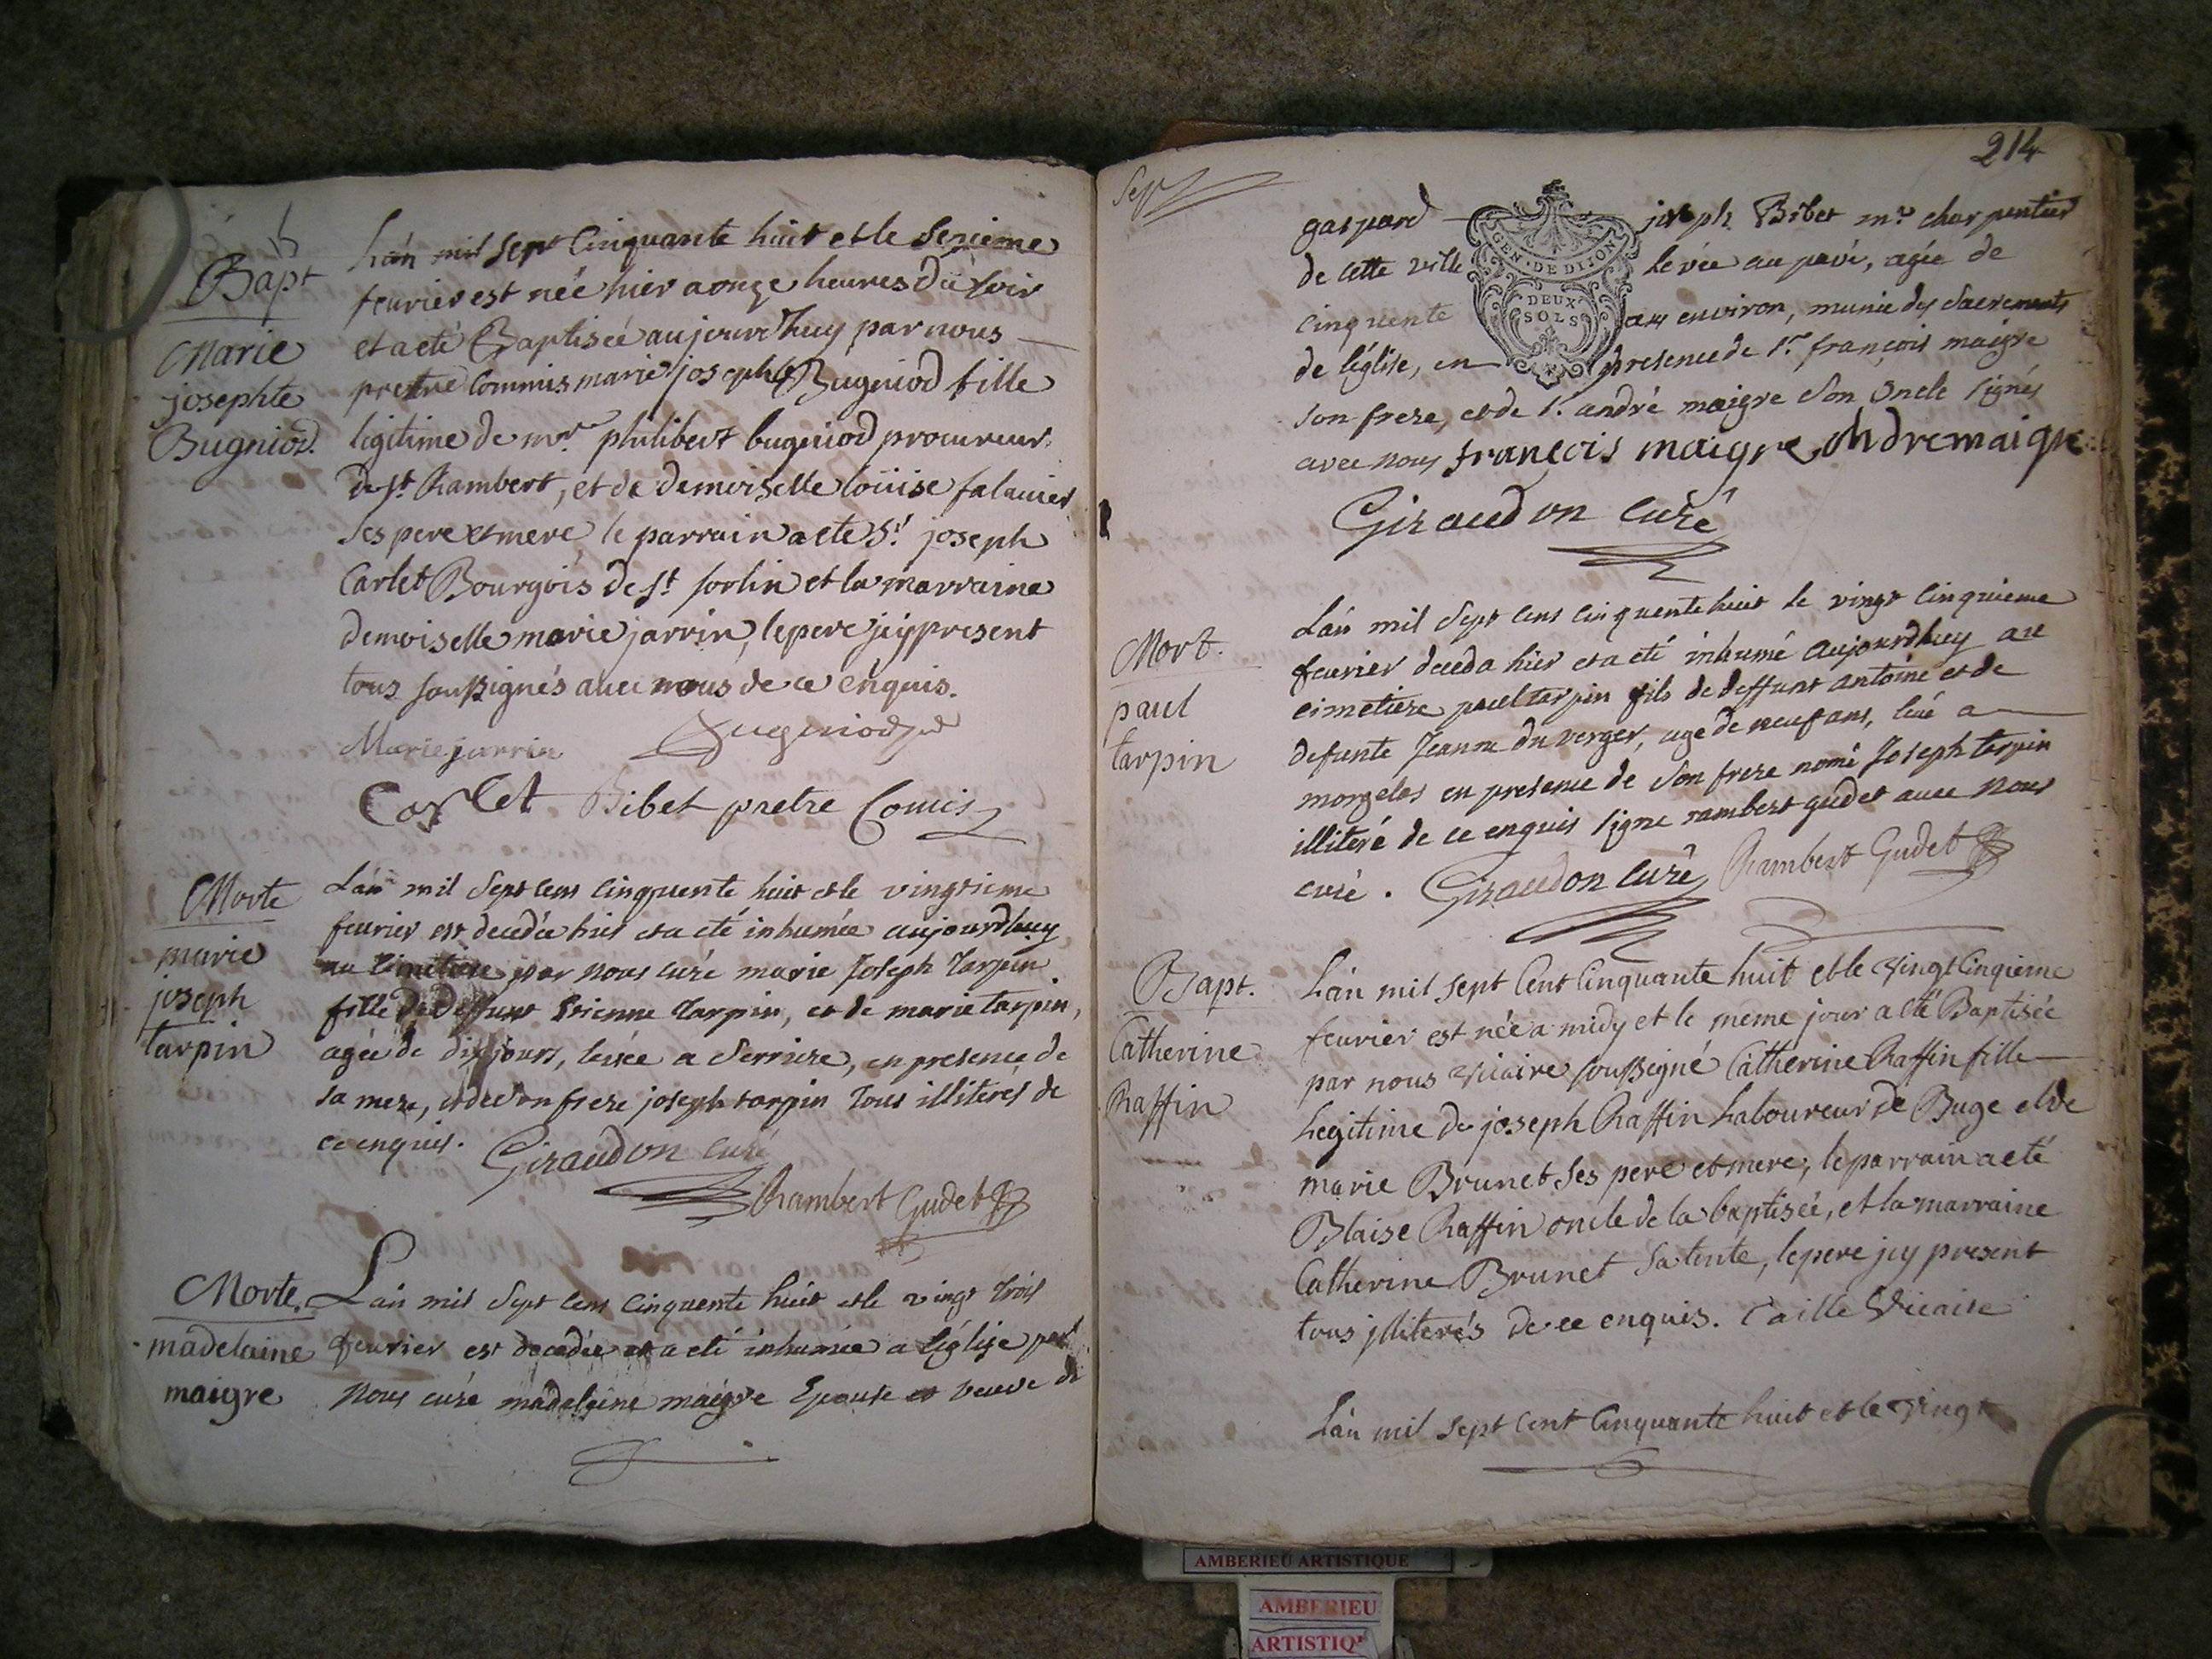 Bapt
Marie
josephte
Bugniod.
Lán mil sept Cinquante huit et le Seizieme
feurier est née hier a onze heures Du soir
et a eté Baptisée aujourd'huy par nous
pretre Commis marie josephte Bugniod fille
legitime de mre philibert bugniod procureur
de st Rambert, et de Demoiselle loüise falauier
Ses pere et mere le parrain a eté Sr joseph
Carlet Bourgois de st sorlin et la marraine
demoiselle marie jarrin, le pere jcy present
tous soussignés auec nous de ce enquis.
Marie jarrin Bugniod
Carlet Bibet pretre Comis
Morte
marie
joseph
tarpin
Lán mil Sept cens Cinquente huit et le vingtieme
feurier est decedée hier et a eté inhumée aujourdhuy
au Cimetiere par nous curé marie Joseph tarpin
fille de deffunt Etienne tarpin, et de marie tarpin,
agée de dix jours, levée a Serriere, en presence de
sa mere, et de son frere joseph tarpin tous illiteres de
ce enquis. Giraudon curé
Rambert Gudet
Morte.
madelaine
maigre
Lán mil Sept cens Cinquente huit et le vingt trois
feurier est decedée et a eté inhumée a léglise par
nous curé madeleine maigre Epouse et veuve de
214
gaspard joseph Bibet mre charpentier
de cette ville levée au pavé, agée de
cinquente ans environ, munie des Sacrements
de léglise, en presence de sr françois maigre
son frere, et de sr andré maigre Son Oncle signés
avec nous françois maigre Andre maigre
Giraudon Curé
GEN. DE DIJON
DEUX
SOLS
Mort.
paul
tarpin
Lán mil Sept cens cinquente huit le vingt cinquieme
feurier deceda hier et a eté inhumé aujourdhuy au
cimetiere paul tarpin fils de deffunt antoine et de
defunte Jeanne du verger, agé de neuf ans, levé a
morgelas en presence de Son frere nomé Joseph tarpin
illiteré de ce enquis signe rambert gudet avec nous
curé. Giraudon Curé Rambert Gudet
Bapt.
Catherine
Raffin
Lán mil sept Cent Cinquante huit et le vingt Cinqieme
feurier est née a midy et le meme jour a eté Baptisée
par nous vicaire soussigné Catherine Raffin fille
Legitime de joseph Raffin Laboureur de Buge et de
marie Brunet Ses pere et mere, le parrain a eté
Blaise Raffin oncle de la baptisée, et la marraine
Catherine Brunet Sa tente, le pere jcy present
tous jlliterés de ce enquis. Caille Vicaire
Lán mil sept Cent Cinquante huit et le vingt
AMBERIEU ARTISTIQUE
AMBERIEU
ARTISTIQ